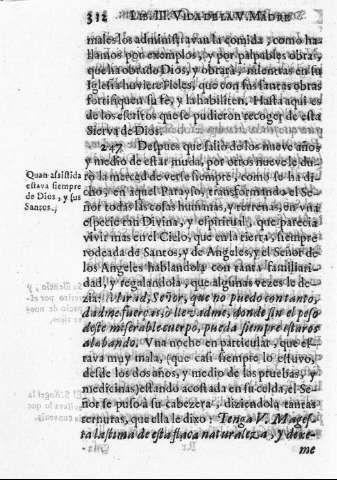 312 LIB. III. VIDA DE LA V. MADRE
males los administravan la comida, como ha-
llamos por exemplos, y por palpables obras,
que ha obrado Dios, y obrarà, mientras en su
Iglesia huviere Fieles, que con sus santas obras
fortifiquen su fè, y la habiliten. Hasta aqui es
de los escritos que se pudieron recoger de esta
Sierva de Dios.
247 Despues que saliò de los nueve años
y medio de estar muda, por otros nueve le du-
rò la merced de verse siempre, como se ha di-
cho, en aquel Parayso, transformando el Se-
ñor todas las cosas humas, y terrenas, en vna
especie tan Divina, y espiritual, que parecia
vivir mas en el Cielo, que en la tierra, siempre
rodeada de Santos, y de Angeles, y el Señor de
los Angeles hablandola con tanta familiari-
dad, y regalandola, que algunas vezes le de-
zia: Mirad, Señor, que no puedo con tanto,
dadme fuerças, ò llevadme, donde sin el peso
deste miserable cuerpo, pueda siempre estaros
alabando. Vna noche en particular, que es-
tava muy mala, (que casi siempre lo estuvo,
desde los dos años, y medio de las pruebas, y
medicinas) estando acostada en su celda, el Se-
ñor se puso à su cabezera, diziendola tantas
ternuras, que ella le dixo: Tenga V. Mages-
tad lastima de esta flaca naturaleza, y dexe-
me
Quan assistida
estava siempre
de Dios, y sus
Santos.